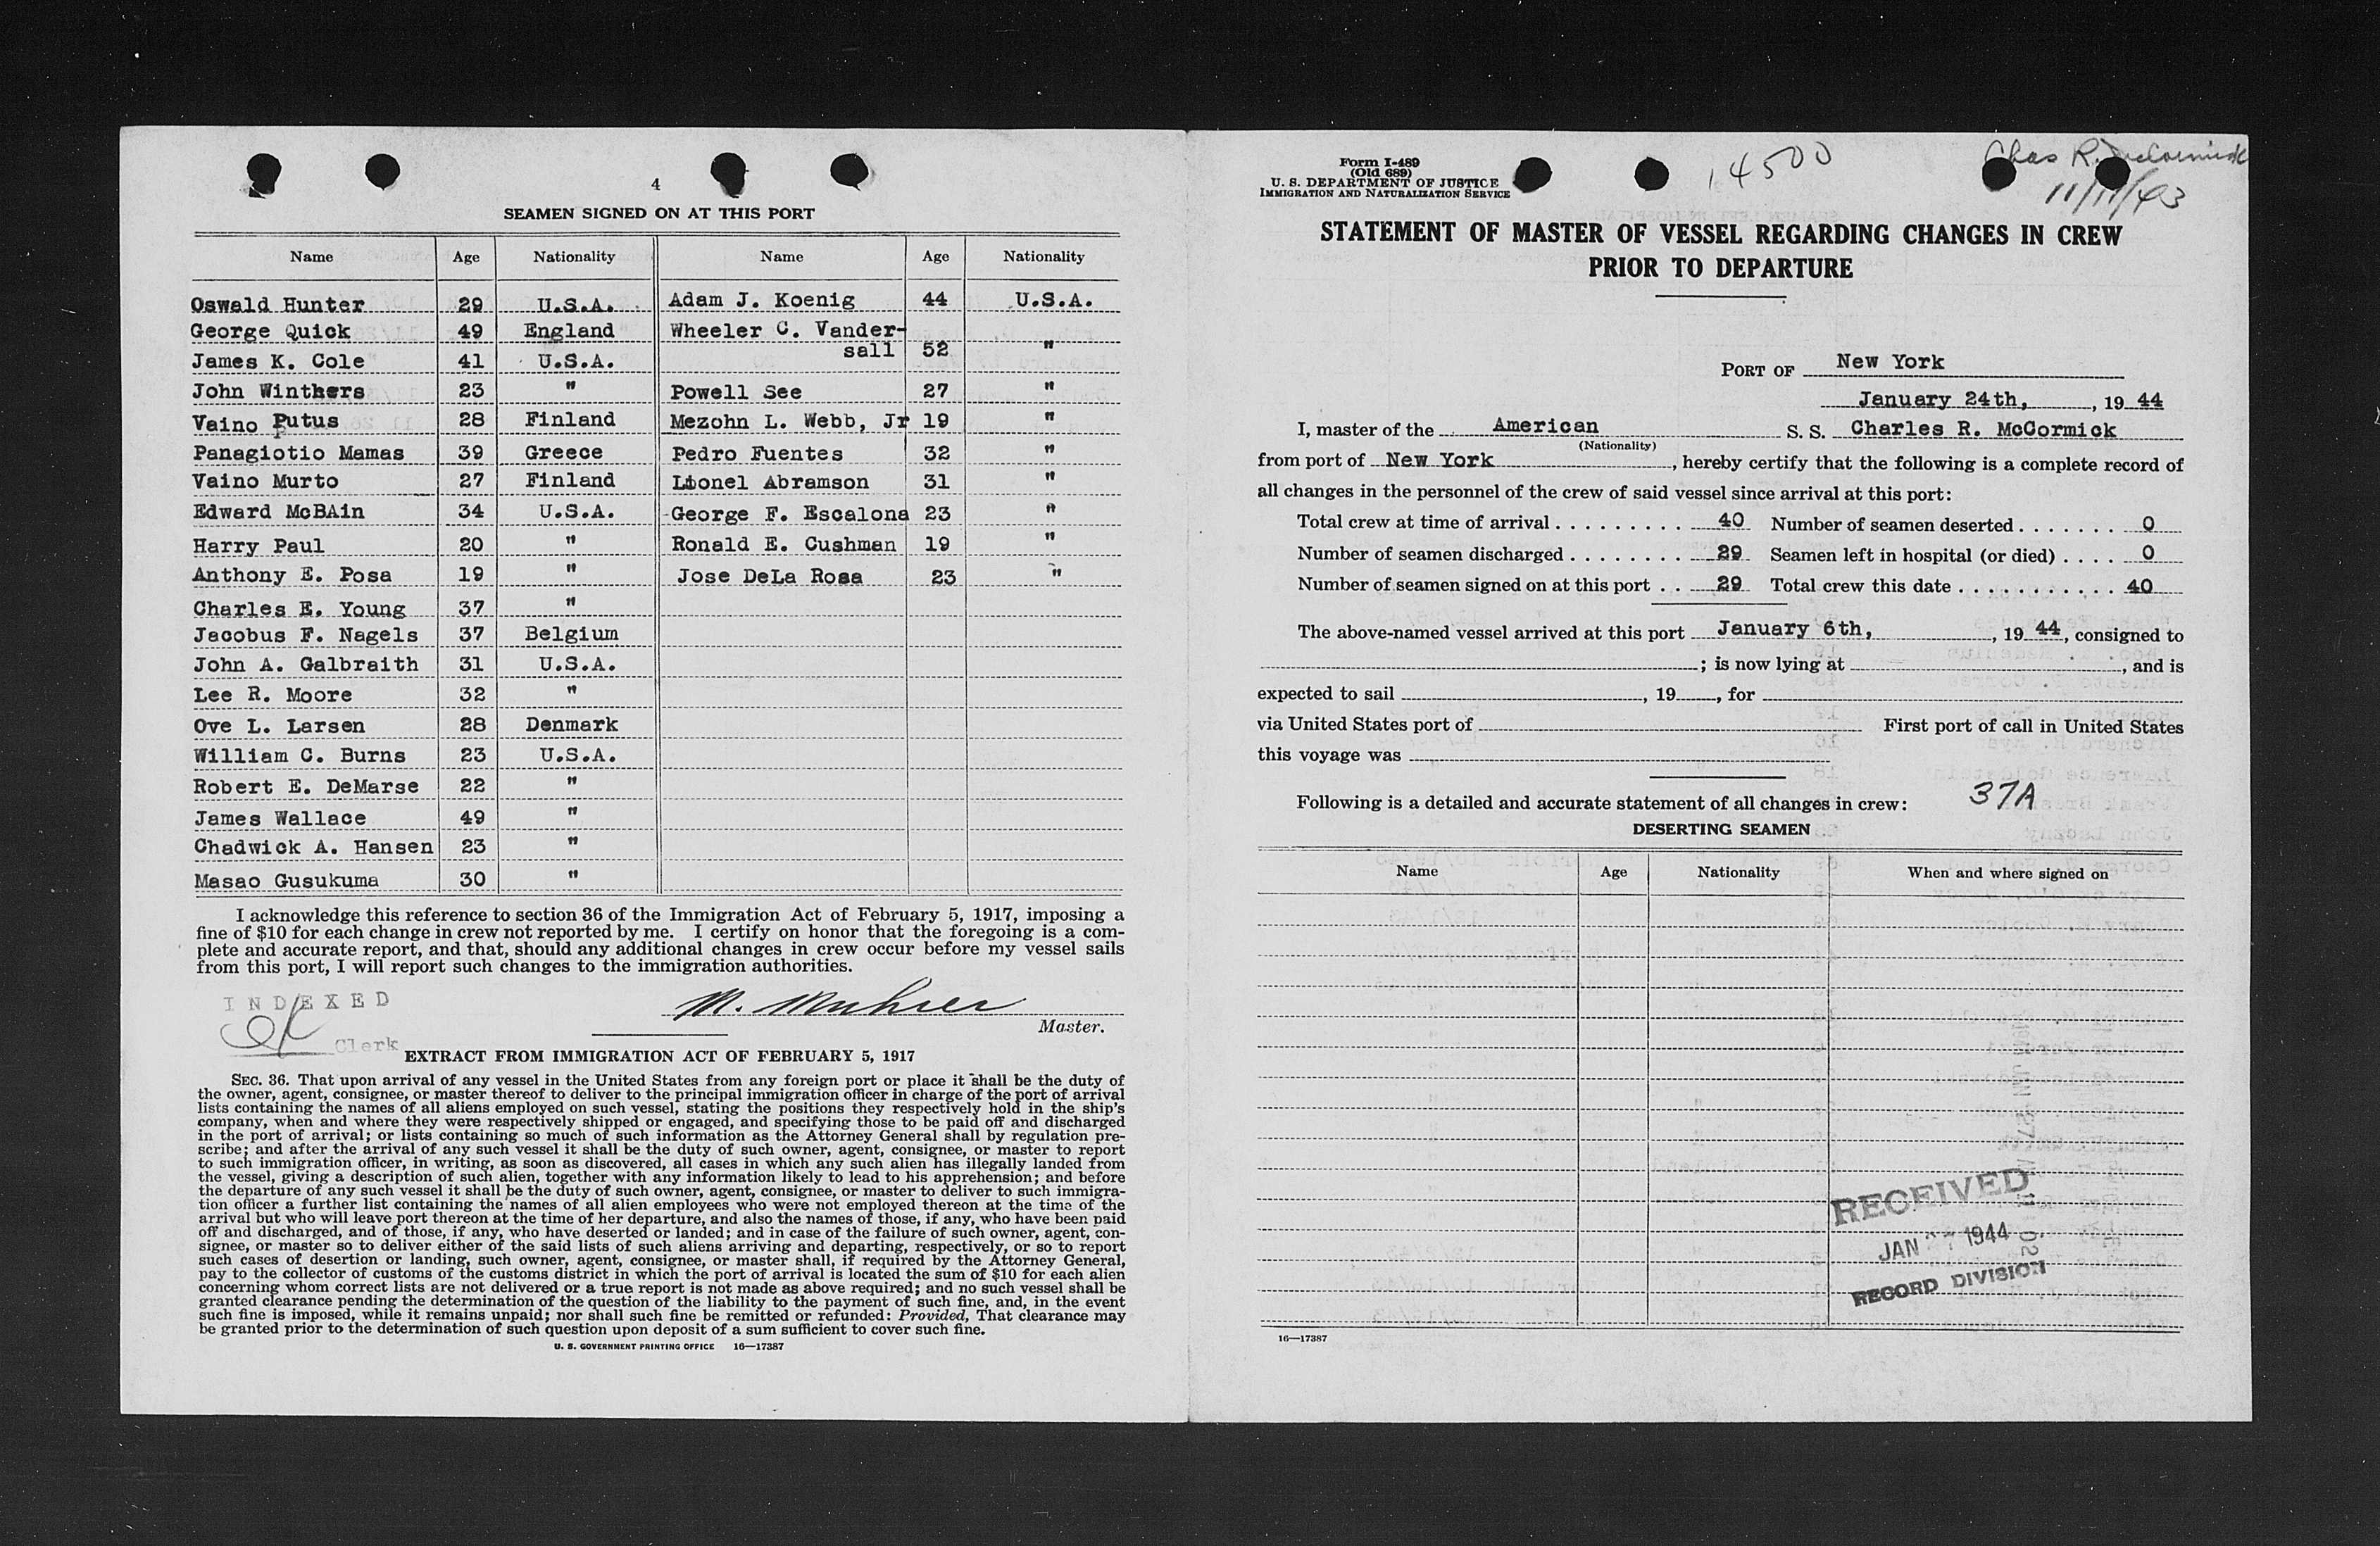 4
SEAMEN SIGNED ON AT THIS PORT
Name Age Nationality Name Age Nationality
Oswald Hunter 29 U.S.A. Adam J. Koenig 44 U.S.A.
George Quick 49 England Wheeler C. Vander-
James K. Cole 41 U.S.A. sall 52 "
John Winthers 23 " Powell See 27 "
Vaino Putus 28 Finland Mezohn L. Webb, Jr 19 "
Panagiotio Mamas 39 Greece Pedro Fuentes 32 "
Vaino Murto 27 Finland Lionel Abramson 31 "
Edward McBAin 34 U.S.A. George F. Escalona 23 "
Harry Paul 20 " Ronald E. Cushman 19 "
Anthony E. Posa 19 " Jose DeLa Rosa 23 "
Charles E. Young 37 "
Jacobus F. Nagels 37 Belgium
John A. Galbraith 31 U.S.A.
Lee R. Moore 32 "
Ove L. Larsen 28 Denmark
William C. Burns 23 U.S.A.
Robert E. DeMarse 22 "
James Wallace 49 "
Chadwick A. Hansen 23 "
Masao Gusukuma 30 "
I acknowledge this reference to section 36 of the Immigration Act of February 5, 1917, imposing a
fine of $10 for each change in crew not reported by me. I certify on honor that the foregoing is a com-
plete and accurate report, and that, should any additional changes in crew occur before my vessel sails
from this port, I will report such changes to the immigration authorities.
INDEXED
Clerk
M. Muhrer
Master.
EXTRACT FROM IMMIGRATION ACT OF FEBRUARY 5, 1917
SEC. 36. That upon arrival of any vessel in the United States from any foreign port or place it shall be the duty of
the owner, agent, consignee, or master thereof to deliver to the principal immigration officer in charge of the port of arrival
lists containing the names of all aliens employed on such vessel, stating the positions they respectively hold in the ship's
company, when and where they were respectively shipped or engaged, and specifying those to be paid off and discharged
in the port of arrival; or lists containing so much of such information as the Attorney General shall by regulation pre-
scribe; and after the arrival of any such vessel it shall be the duty of such owner, agent, consignee, or master to report
to such immigration officer, in writing, as soon as discovered, all cases in which any such alien has illegally landed from
the vessel, giving a description of such alien, together with any information likely to lead to his apprehension; and before
the departure of any such vessel it shall be the duty of such owner, agent, consignee, or master to deliver to such immigra-
tion officer a further list containing the names of all alien employees who were not employed thereon at the time of the
arrival but who will leave port thereon at the time of her departure, and also the names of those, if any, who have been paid
off and discharged, and of those, if any, who have deserted or landed; and in case of the failure of such owner, agent, con-
signee, or master so to deliver either of the said lists of such aliens arriving and departing, respectively, or so to report
such cases of desertion or landing, such owner, agent, consignee, or master shall, if required by the Attorney General,
pay to the collector of customs of the customs district in which the port of arrival is located the sum of $10 for each alien
concerning whom correct lists are not delivered or a true report is not made as above required; and no such vessel shall be
granted clearance pending the determination of the question of the liability to the payment of such fine, and, in the event
such fine is imposed, while it remains unpaid; nor shall such fine be remitted or refunded: Provided, That clearance may
be granted prior to the determination of such question upon deposit of a sum sufficient to cover such fine.
U. S. GOVERNMENT PRINTING OFFICE 16—17387
Form I-489
(Old 689)
U. S. DEPARTMENT OF JUSTICE
IMMIGRATION AND NATURALIZATION SERVICE
14500
Chas R. McCormick
11/11/43
STATEMENT OF MASTER OF VESSEL REGARDING CHANGES IN CREW
PRIOR TO DEPARTURE
PORT OF New York
January 24th, , 19 44
I, master of the American S. S. Charles R. McCormick
(Nationality)
from port of New York , hereby certify that the following is a complete record of
all changes in the personnel of the crew of said vessel since arrival at this port:
Total crew at time of arrival . . . . . . . . . 40 Number of seamen deserted . . . . . . . 0
Number of seamen discharged . . . . . . . . 29 Seamen left in hospital (or died) . . . . 0
Number of seamen signed on at this port . . 29 Total crew this date . . . . . . . . . . . 40
The above-named vessel arrived at this port January 6th, , 19 44, consigned to
; is now lying at , and is
expected to sail , 19 , for
via United States port of First port of call in United States
this voyage was
Following is a detailed and accurate statement of all changes in crew: 37A
DESERTING SEAMEN
Name Age Nationality When and where signed on
RECEIVED
JAN 27 1944
RECORD DIVISION
16—17387